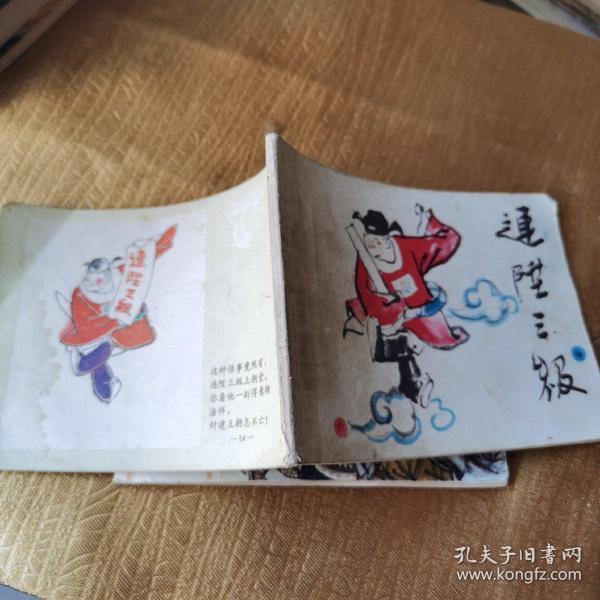 連陞三級
連陞三級
这种怪事竟然有，
连陞三级上朝堂，
你看他一副得意
封建王朝怎不亡！
—54—
孔夫子旧书网
www.kongfz.com